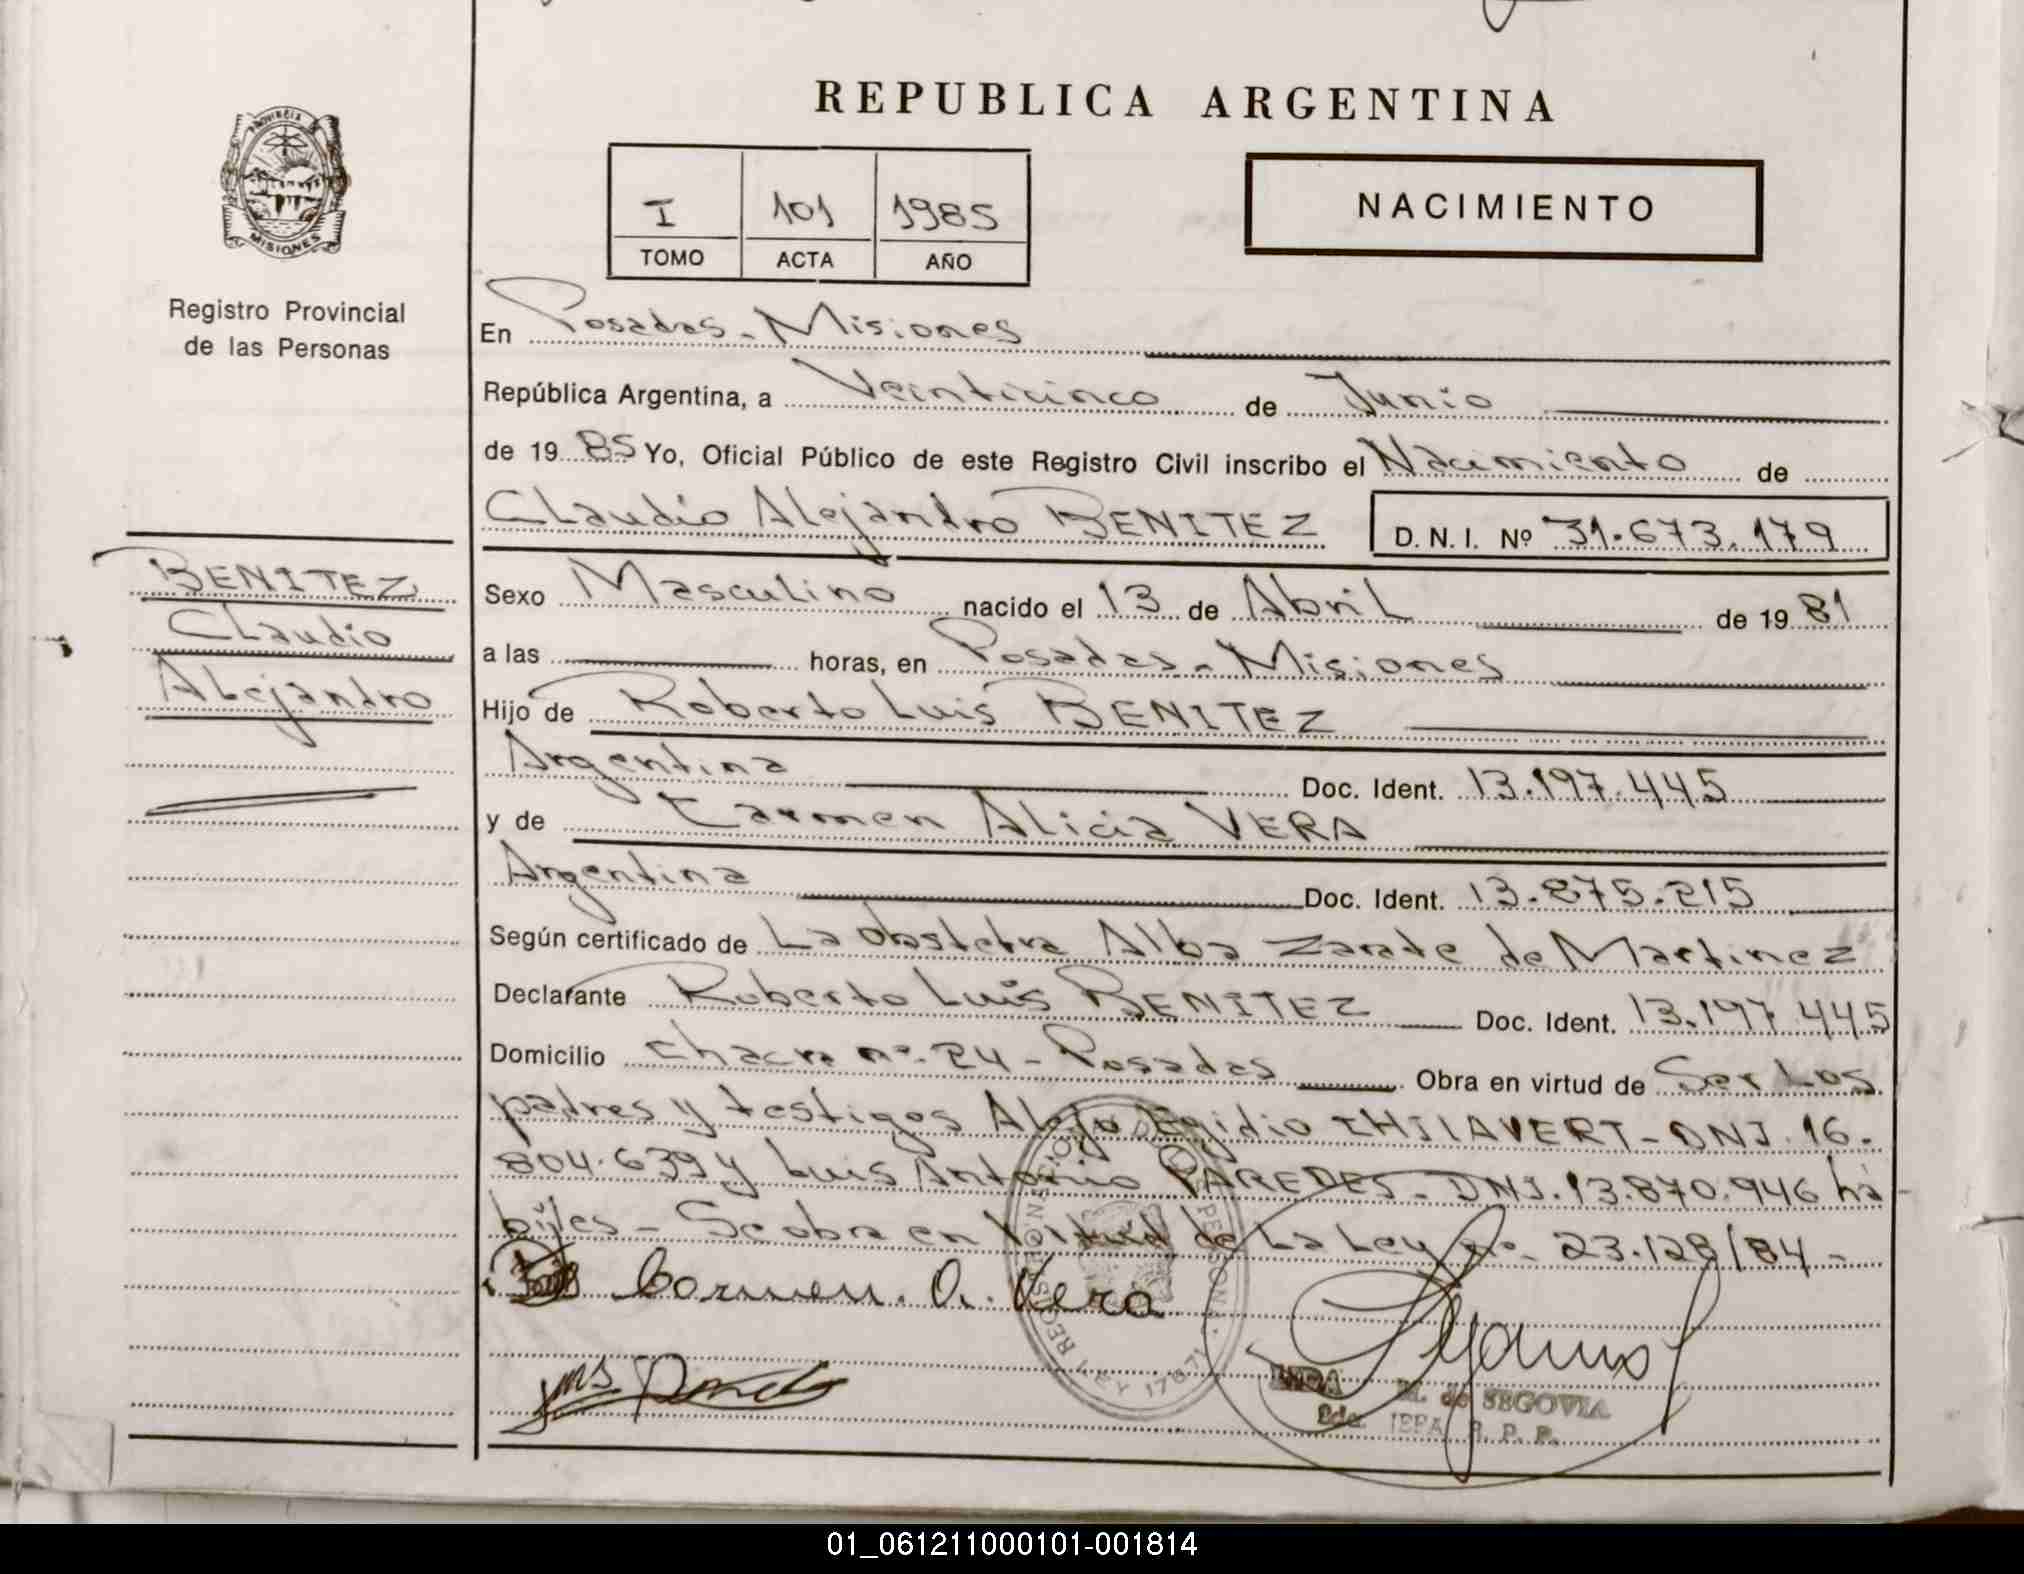 REPUBLICA ARGENTINA
PROVINCIA DE
MISIONES
Registro Provincial
de las Personas
I 101 1985
TOMO ACTA AÑO
NACIMIENTO
En Posadas - Misiones
República Argentina, a Veinticinco de Junio
de 1985 Yo, Oficial Público de este Registro Civil inscribo el Nacimiento de
Claudio Alejandro BENITEZ D. N. I. Nº 31.673.179
BENITEZ
Claudio
Alejandro
Sexo Masculino nacido el 13 de Abril de 1981
a las horas, en Posadas - Misiones
Hijo de Roberto Luis BENITEZ
Argentina Doc. Ident. 13.197.445
y de Carmen Alicia VERA
Argentina Doc. Ident. 13.875.215
Según certificado de La obstetra Alba Zarate de Martinez
Declarante Roberto Luis BENITEZ Doc. Ident. 13.197.445
Domicilio chacra nº 24 - Posadas Obra en virtud de Ser Los
padres y testigos Egidio - DNI. 16.
804.639 y Luis Antonio PAREDES - DNI. 13.870.946 há
biles - Se obra en Virtud de La Ley nº 23.128/84 -
Carmen. A. Vera
M. de SEGOVIA
2da. JEFA R. P. P.
01_061211000101-001814